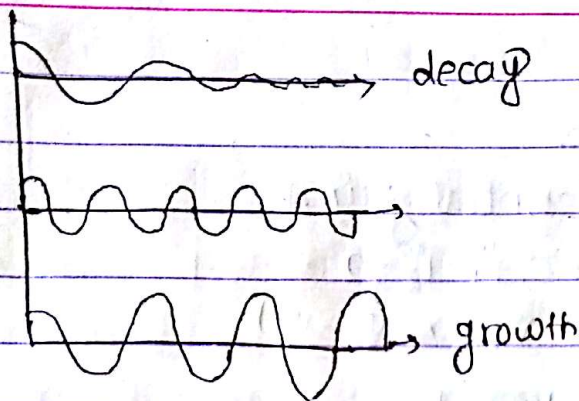 decay
growth